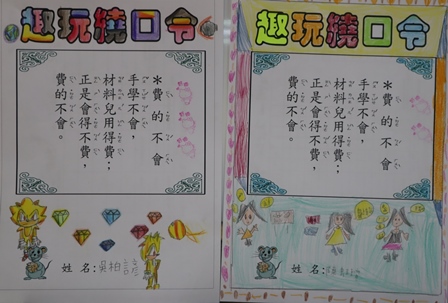 趣玩繞口令
*費的不會
手學不會，
材料兒用得費；
正是會得不費，
費的不會。
姓名：吳柏諺
趣玩繞口令
*費的不會
手學不會，
材料兒用得費；
正是會得不費，
費的不會。
姓名：